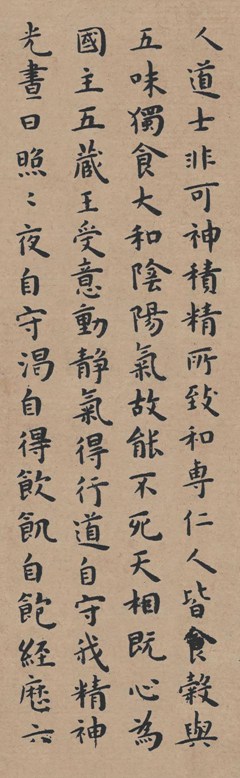 人道士非可神積精所致和専仁人皆食穀與
五味獨食大和陰陽氣故能不死天相既心為
國主五蔵王受意動静氣得行道自守我精神
光晝日照〻夜自守渴自得飲飢自飽經歷六